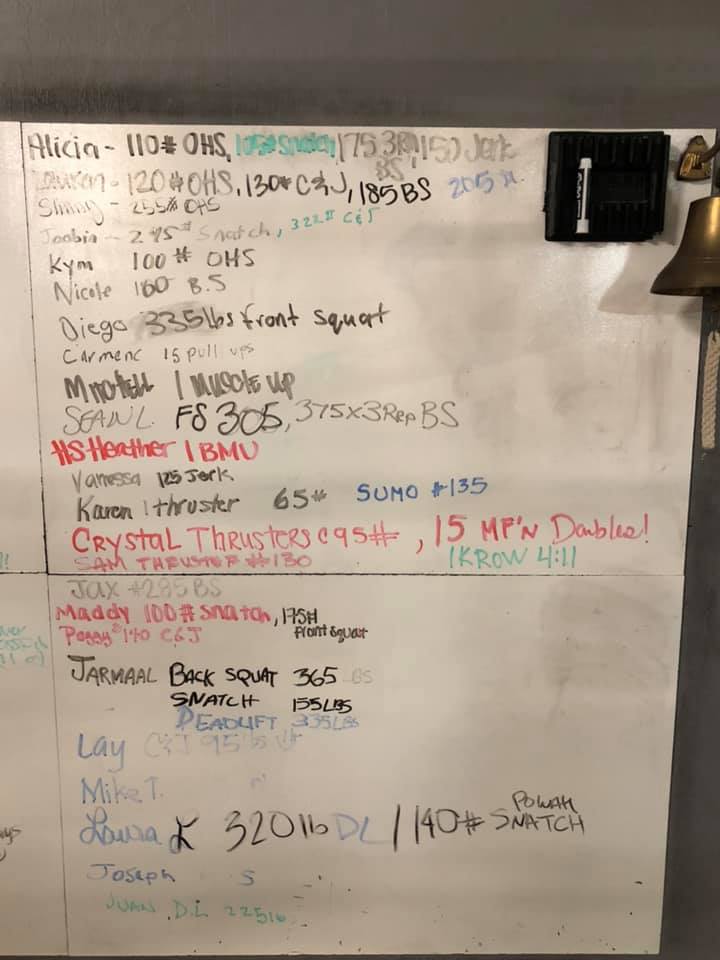 Alicia - 110# OHS, 105# Snatch, 175 3R BS, 150 Jerk
Lauren - 120# OHS, 130# C&J, 185 BS
Slimmy - 255# OHS
Joobin - 295# Snatch, 322# C&J
Kym 100# OHS
Nicole 160 B.S
Diego 335lbs front squat
Carmenc 15 pull ups
Mitchell 1 Muscle up
SEAN L. FS 305, 375x3Rep BS
HS Heather 1 BMU
Vanessa 125 Jerk
Karen 1 thruster 65# SUMO #135
CRYSTAL THRUSTERS @ 95#, 15 MF'N Doubles!
SAM THRUSTER #130 1K ROW 4:11
Jax #285 BS
Maddy 100# Snatch, 175# front squat
Peggy 140 C&J
JARMAAL BACK SQUAT 365 BS
SNATCH 155LBS
DEADLIFT 335LBS
Lay C&J 95lbs
Mike T.
Laura K 320lb DL / 140# POWAH SNATCH
Joseph S
JUAN D.L 225lb